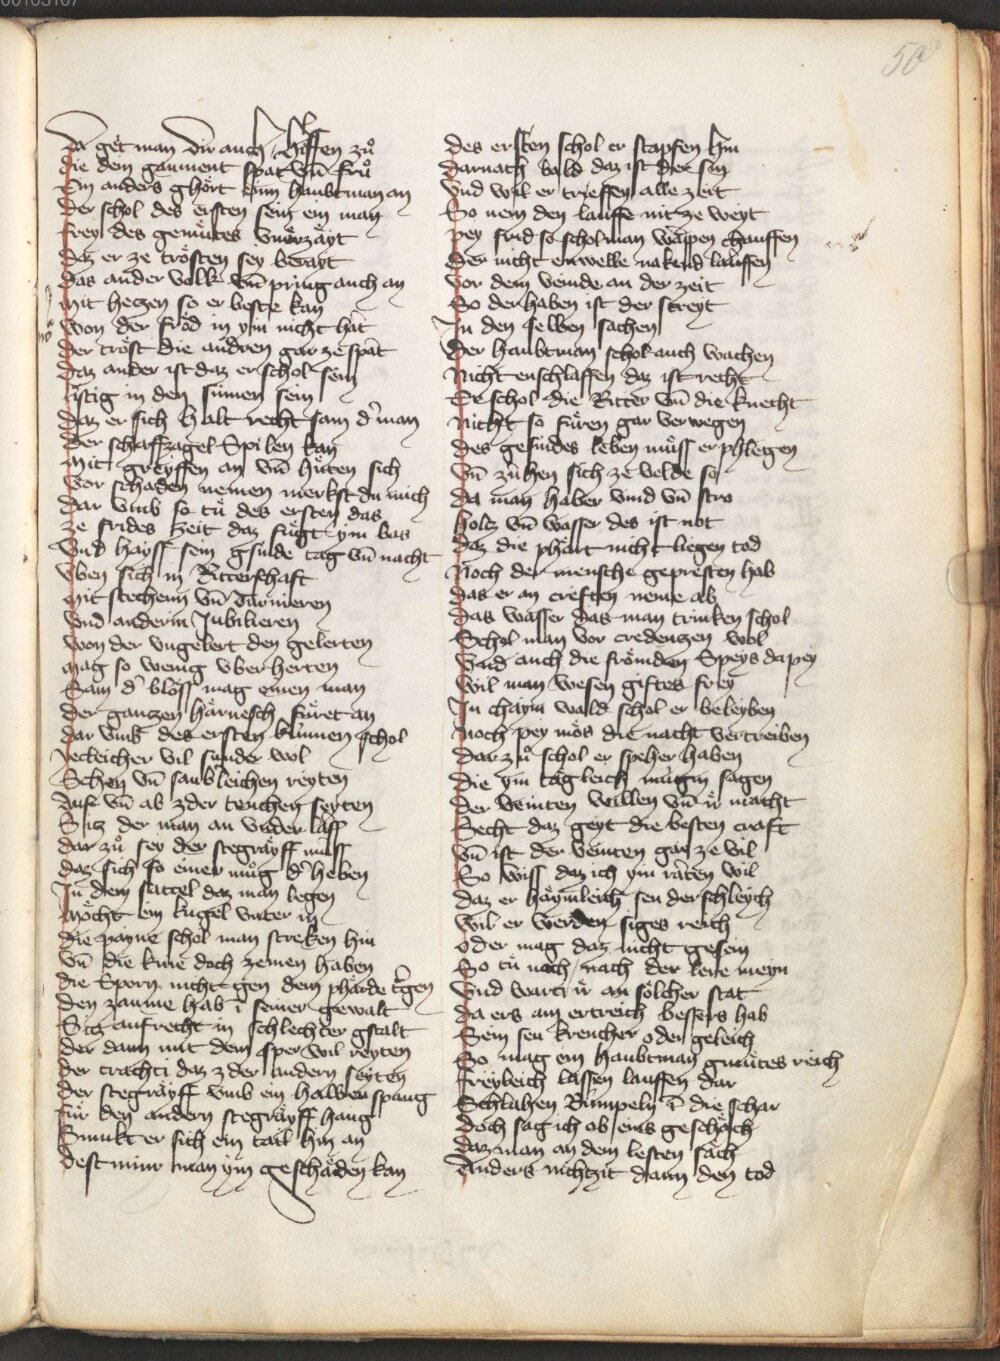 00103107
50
Da get man dir auch schiffen zů
die dem gaument spat vnd frů
Ein anders ghört einm haubtman an
Der schol des ersten sein ein man
Frey des gemütes vnuerzäyt
daz er ze trösten sey berayt
Das ander volk vn̄ pring auch an
mit heczen so er beste kan
Won der fröd in ym nicht hat
der tröst die andren gar ze spat
Daz ander ist daz er schol sein
listig in den sinnen sein
Daz er sich halt recht sam d' man
Der schaffzagel Spilen kan
Mit greyffen an vn̄ hüten sich
Vor schaden nemen merkst du mich
Dar vmb so tů des ersten das
ze frides zeit daz fügt ym bas
Vnd hayss sein gsinde tag vn̄ nacht
Vben sich in Ritterschaft
Mit stechenn vn̄ Turnieren
Vnd anderm Jubilieren
Won der vngelert den gelerten
mag so wenig vberherten
Sam d' bloss mag einen man
Der ganczen härnesch füret an
dar vmb des ersten künnen schol
Jecleicher vil sunder wol
Sehen vn̄ saubleichen reyten
Auf vn̄ ab zder tencken seyten
Sicz der man an vnder lass
dar zů sey der stegräyff mass
daz sich so einer müg d'heben
In dem sattel daz man legen
möcht ein kugel vnter in
die payne schol man streken hin
Vn̄ die knie doch zemen haben
die Sporn nicht gen dem phärde t'gen
Den zaume hab ī seiner gewalt
Sicz aufrecht in schlechter gstalt
Der dann mit dem sper wil reyten
Der tracht daz zder andern seyten
Der stegräyff vmb ein halben spang
Für den andern stegräyff hang
Smukt er sich ein tail hin an
Dest minr man ym geschaden kan
des ersten schol er stapfen hin
Darnach bald daz ist der sin
Vnd wil er treffen alle zeit
So nem den lauffe nit ze weyt
Pey frid so schol man wappen chauffen
Der nicht enwelle nakend lauffen
Vor dem veinde an der zeit
So derhaben ist der streyt
In den selben sachen
Der haubtman schol auch wachen
Nicht enschlaffen daz ist recht
Er schol die Ritter vn̄ die knecht
Nicht so füren gar verwegen
Des gesindes leben müss er phlegen
Vn̄ zühen sich ze velde so
Da man haber vind vn̄ stro
Holcz vn̄ wasser des ist not
Daz die phärt nicht liegen tod
Noch der mensche gepresten hab
Das er an creften neme ab
Das wasser das man trinken schol
Schol man vor credenczen wol
Vnd auch die frömden Speys da pey
Wil man wesen giftes frey
In chaym wald schol er beleyben
Noch pey mos die nacht vertreiben
Dar zů schol er speher haben
Die ym tägleich mugin sagen
Der veinten willen vn̄ ir macht
Secht daz geyt die besten craft
Vn̄ ist der veinten gar ze vil
So wiss daz ich ym raten wil
Daz er haymleich sen der schleych
Wil er werden siges reich
Oder mag daz nicht gesein
So tů noch nach der lere mein
Vnd wart ir an sölcher stat
Da ers am ertreich bessers hab
Sein sen krencher oder geleich
So mag ein haubtman gmütes reich
Freyleich lassen lauffen dar
Schlahen Pumpeln ī die schar
Doch sag ich ob ens geschäch
Daz man an dem lesten säch
Anders nichtzit dann den tod